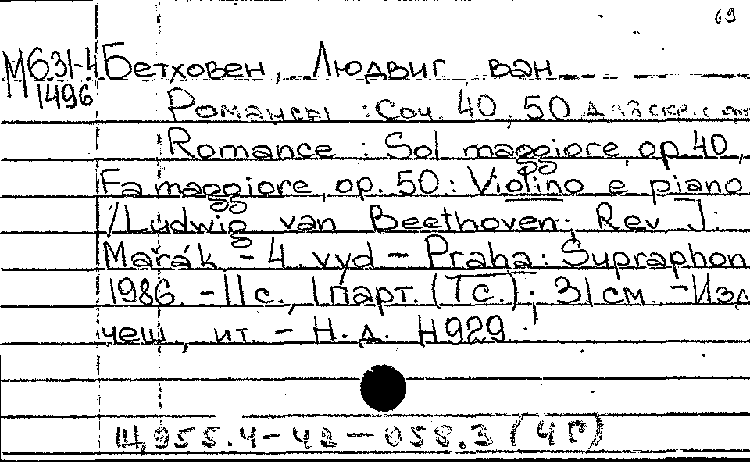 69
М631-4 Бетховен, Людвиг ван
1496
Романсы : Соч. 40, 50 для скр. с
Romance : Sol maggiore, op. 40,
Fa maggiore, op. 50 : Violino e piano
/ Ludwig van Beethoven; Rev J.
Marák - 4. vyd - Praha : Supraphon
1986. - 11 с., 1 парт. (7 с.) ; 31 см. - Изд
чеш., ит. - Н. д. H929.
Щ955.4-42-058.3 (4П)